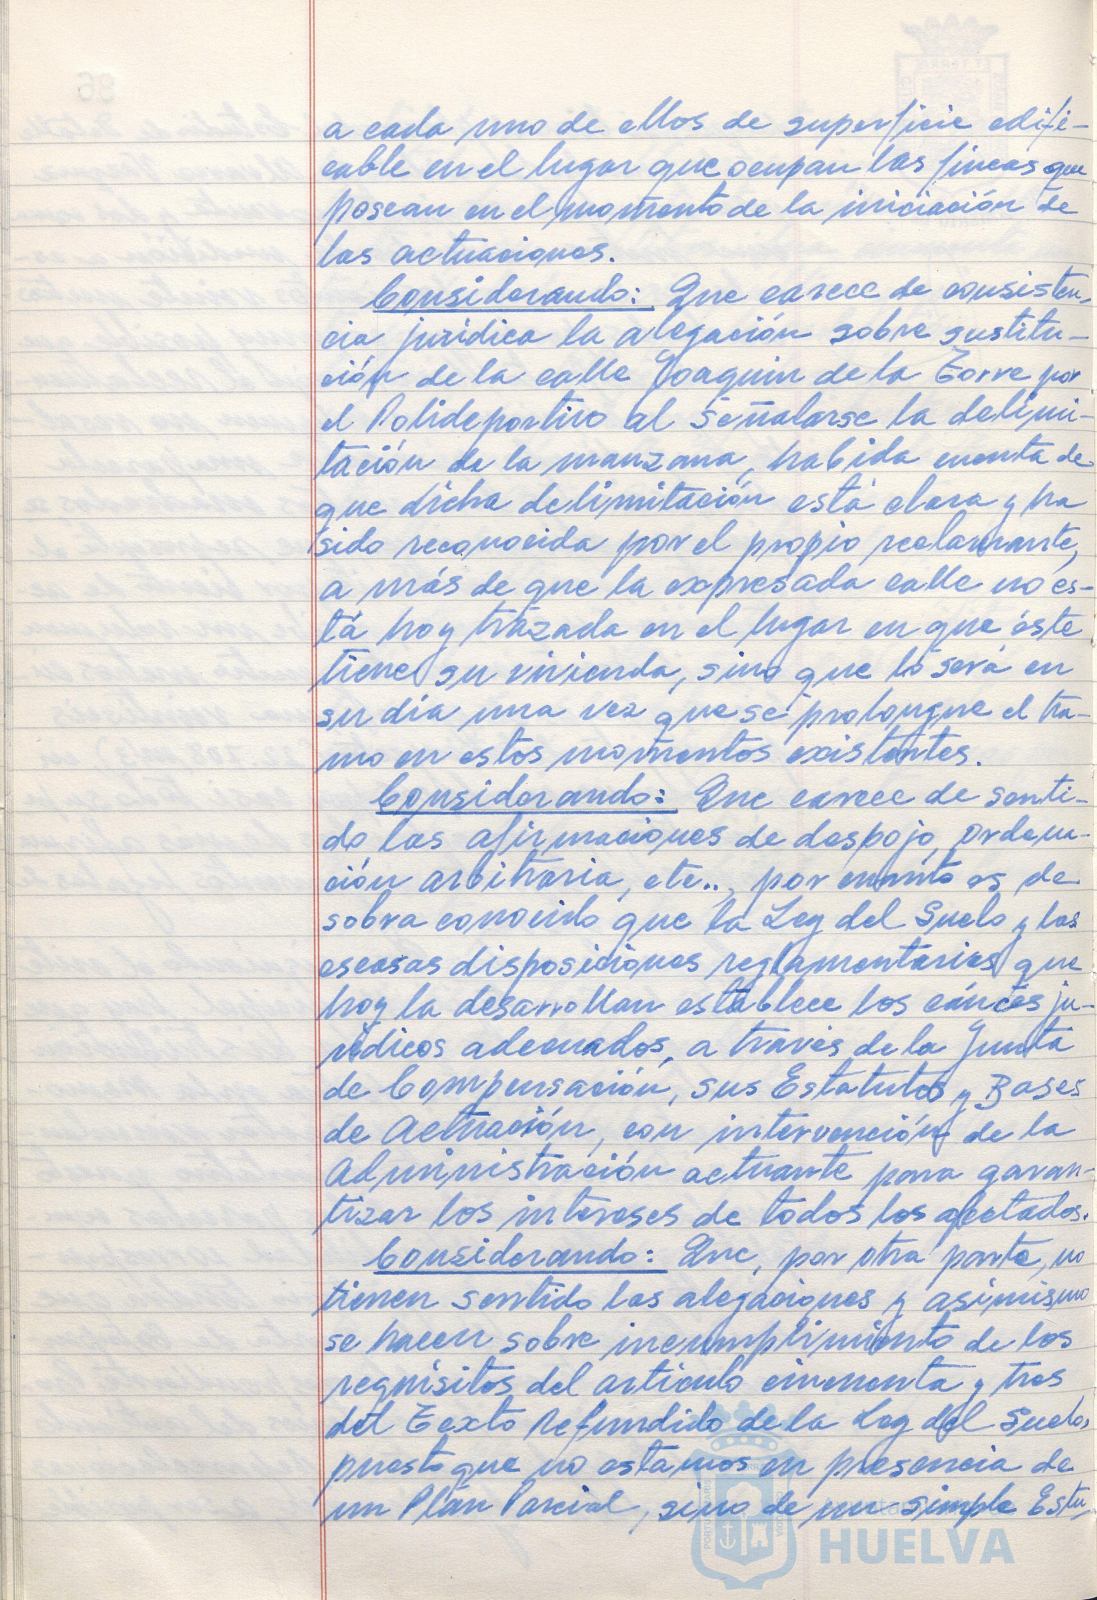 a cada uno de ellos de superficie edifi-
cable en el lugar que ocupan las fincas que
posean en el momento de la iniciación de
las actuaciones.
Considerando: Que carece de consisten-
cia jurídica la alegación sobre sustitu-
ción de la calle Joaquin de la Torre por
el Polideportivo al señalarse la delimi-
tación de la manzana, habida cuenta de
que dicha delimitación está clara y ha
sido reconocida por el propio reclamante,
a más de que la expresada calle no es-
tá hoy trazada en el lugar en que éste
tiene su vivienda, sino que lo será en
su día una vez que se prolongue el tra-
mo en estos momentos existentes.
Considerando: Que carece de senti-
do las afirmaciones de despojo, ordena-
ción arbitraria, etc.., por cuanto es de
sobra conocido que la Ley del Suelo y las
escasas disposiciones reglamentarias que
hoy la desarrollan establece los cáuces ju-
rídicos adecuados, a través de la Junta
de Compensación, sus Estatutos y Bases
de Actuación, con intervención de la
Administración actuante para garan-
tizar los intereses de todos los afectados.
Considerando: Que, por otra parte, no
tienen sentido las alegaciones y asimismo
se hacen sobre incumplimiento de los
requisitos del artículo cincuenta y tres
del Texto Refundido de la Ley del Suelo,
puesto que no estamos en presencia de
un Plan Parcial, sino de un simple Estu-
HUELVA